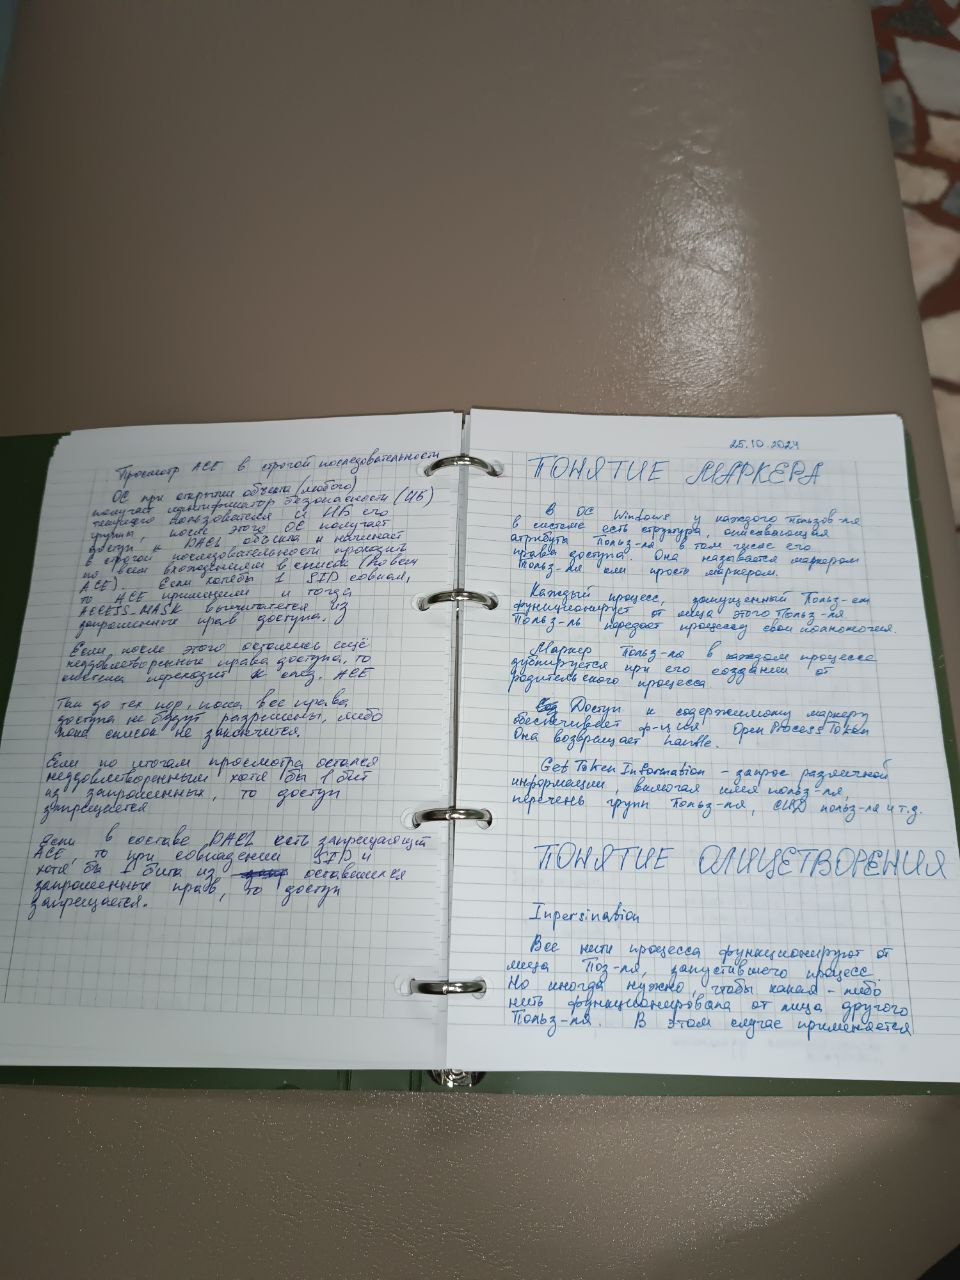 Просмотр ACE в строгой последовательности
ОС при открытии объекта (любого)
получает идентификатор безопасности (ИБ)
текущего пользователя и ИБ его
группы, после этого ОС получает
доступ к DACL объекта и начинает
в строгой последовательности проходить
по всем вхождениям в список (по всем
ACE). Если хотябы 1 SID совпал,
то ACE применяем и тогда
ACCESS-MASK вычитается из
запрошенных прав доступа.
Если, после этого остались ещё
неудовлетворенные права доступа, то
система переходит к след. ACE
Так до тех пор, пока все права
доступа не будут разрешены, либо
пока список не закончится.
Если по итогам просмотра остался
неудовлетворенным хотя бы 1 бит
из запрошенных, то доступ
запрещается
Если в составе DACL есть запрещающий
ACE, то при совпадении SID и
хотя бы 1 бита из оставшихся
запрошенных прав, то доступ
запрещается.
25.10.2024
ПОНЯТИЕ МАРКЕРА
В ОС Windows у каждого пользов-ля
в системе есть структура, описывающая
атрибуты Польз-ля в том числе его
права доступа. Она называется маркером
Польз-ля или просто маркером.
Каждый процесс, запущенный Польз-ем
функционирует от лица этого Польз-ля
Польз-ль передает процессу свои полномочия.
Маркер Польз-ля в каждом процессе
дублируется при его создании от
родительского процесса
Доступ к содержимому маркеру
обеспечивает ф-ция OpenProcessToken
Она возвращает handle.
GetTokenInformation - запрос различной
информации, включая имя польз-ля,
перечень групп Польз-ля, СИД польз-ля и т.д.
ПОНЯТИЕ ОЛИЦЕТВОРЕНИЯ
Inpersination
Все нити процесса функционируют от
лица Поз-ля, запустившего процесс
Но иногда нужно, чтобы какая-либо
нить функционировала от лица другого
Польз-ля. В этом случае применяется